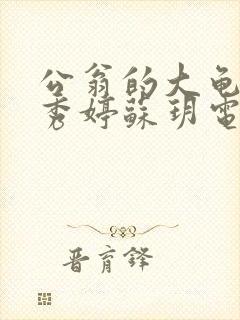 公翁的大龟
秀婷蘇玥電
晋育鋒